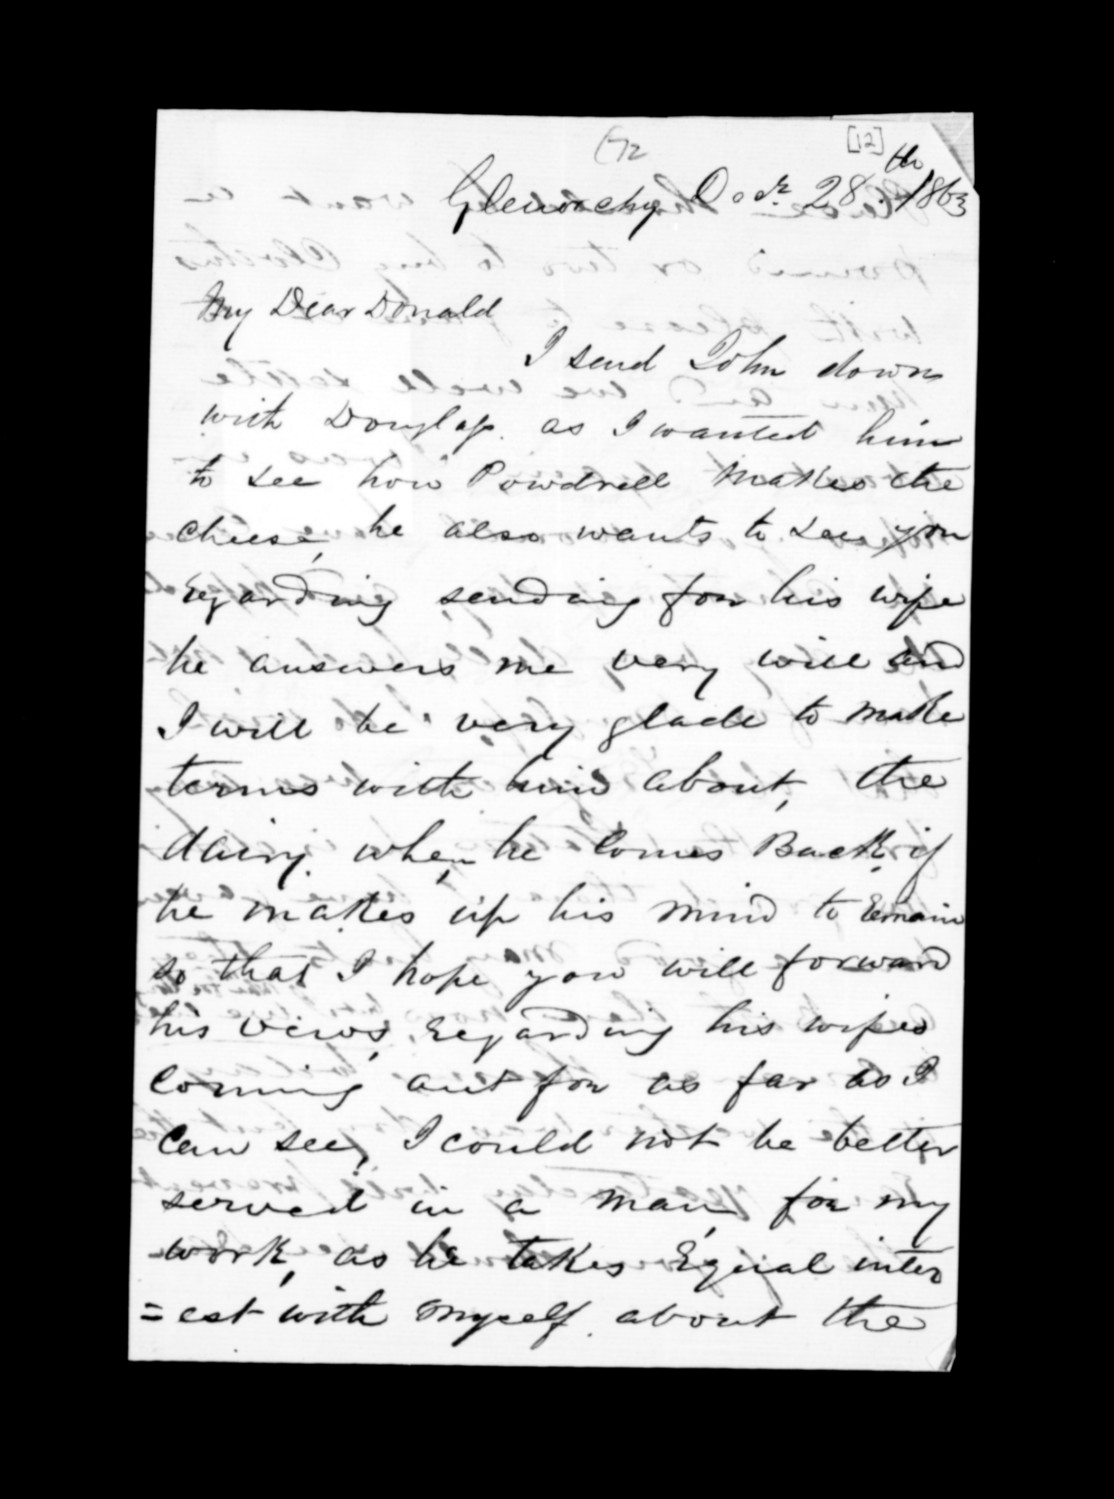 [12]
Glenorchy Octr. 28th. 1863
My Dear Donald
I send John down
with Douglass. as I wanted him
to see how Powdrell Makes the
cheese, he also wants to see you
regarding sending for his wife
he answers me very will and
I will be very glade to make
terms with him about, the
dairy. when he comes Back, if
he makes up his mind to remain
so that I hope you will forward
his views, regarding his wifes
coming out for as far as I
can see, I could not be better
served in a man, for my
work, as he takes Equal inter
=est with myself. about the